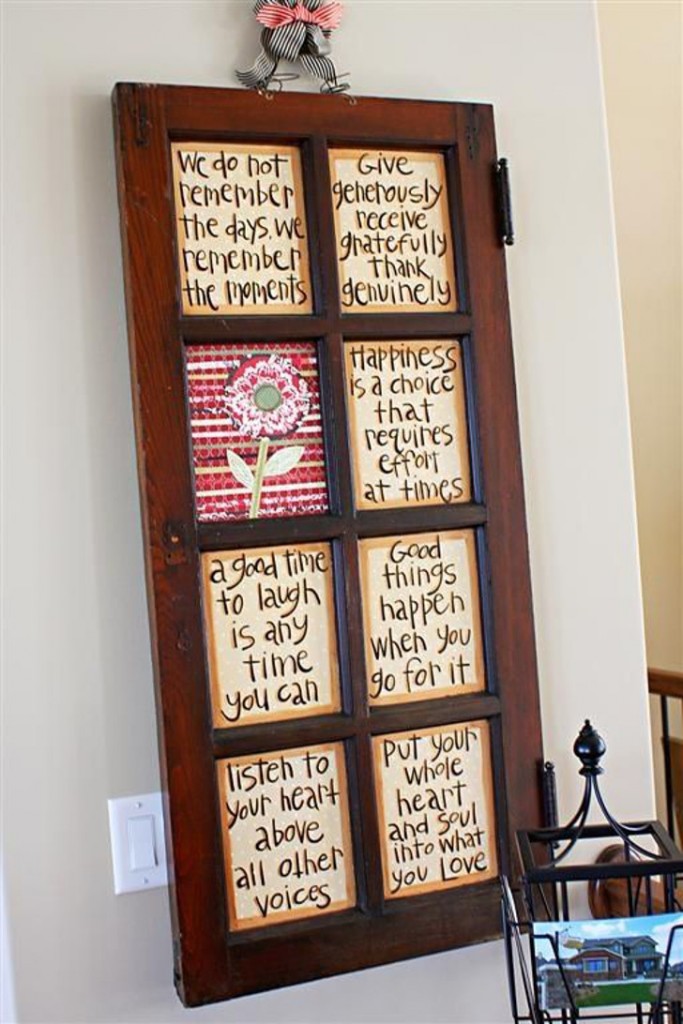 We do not
remember
the days, we
remember
the moments
Give
generously
receive
gratefully
thank
genuinely
Happiness
is a choice
that
requires
effort
at times
a good time
to laugh
is any
time
you can
Good
things
happen
when you
go for it
listen to
your heart
above
all other
voices
Put your
whole
heart
and soul
into what
you Love